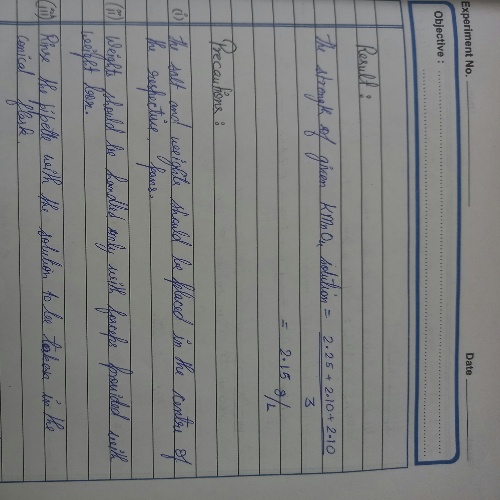 Experiment No.
Date
Objective :
Result :
The strength of given KMnO4 solution = 2.25 + 2.10 + 2.10
3
= 2.15 g/L
Precautions :
(i) The salt and weights should be placed in the centre of
the respective pans.
(ii) Weights should be handled only with forceps provided with
weight box.
(iii) Rinse the pipette with the solution to be taken in the
conical flask.